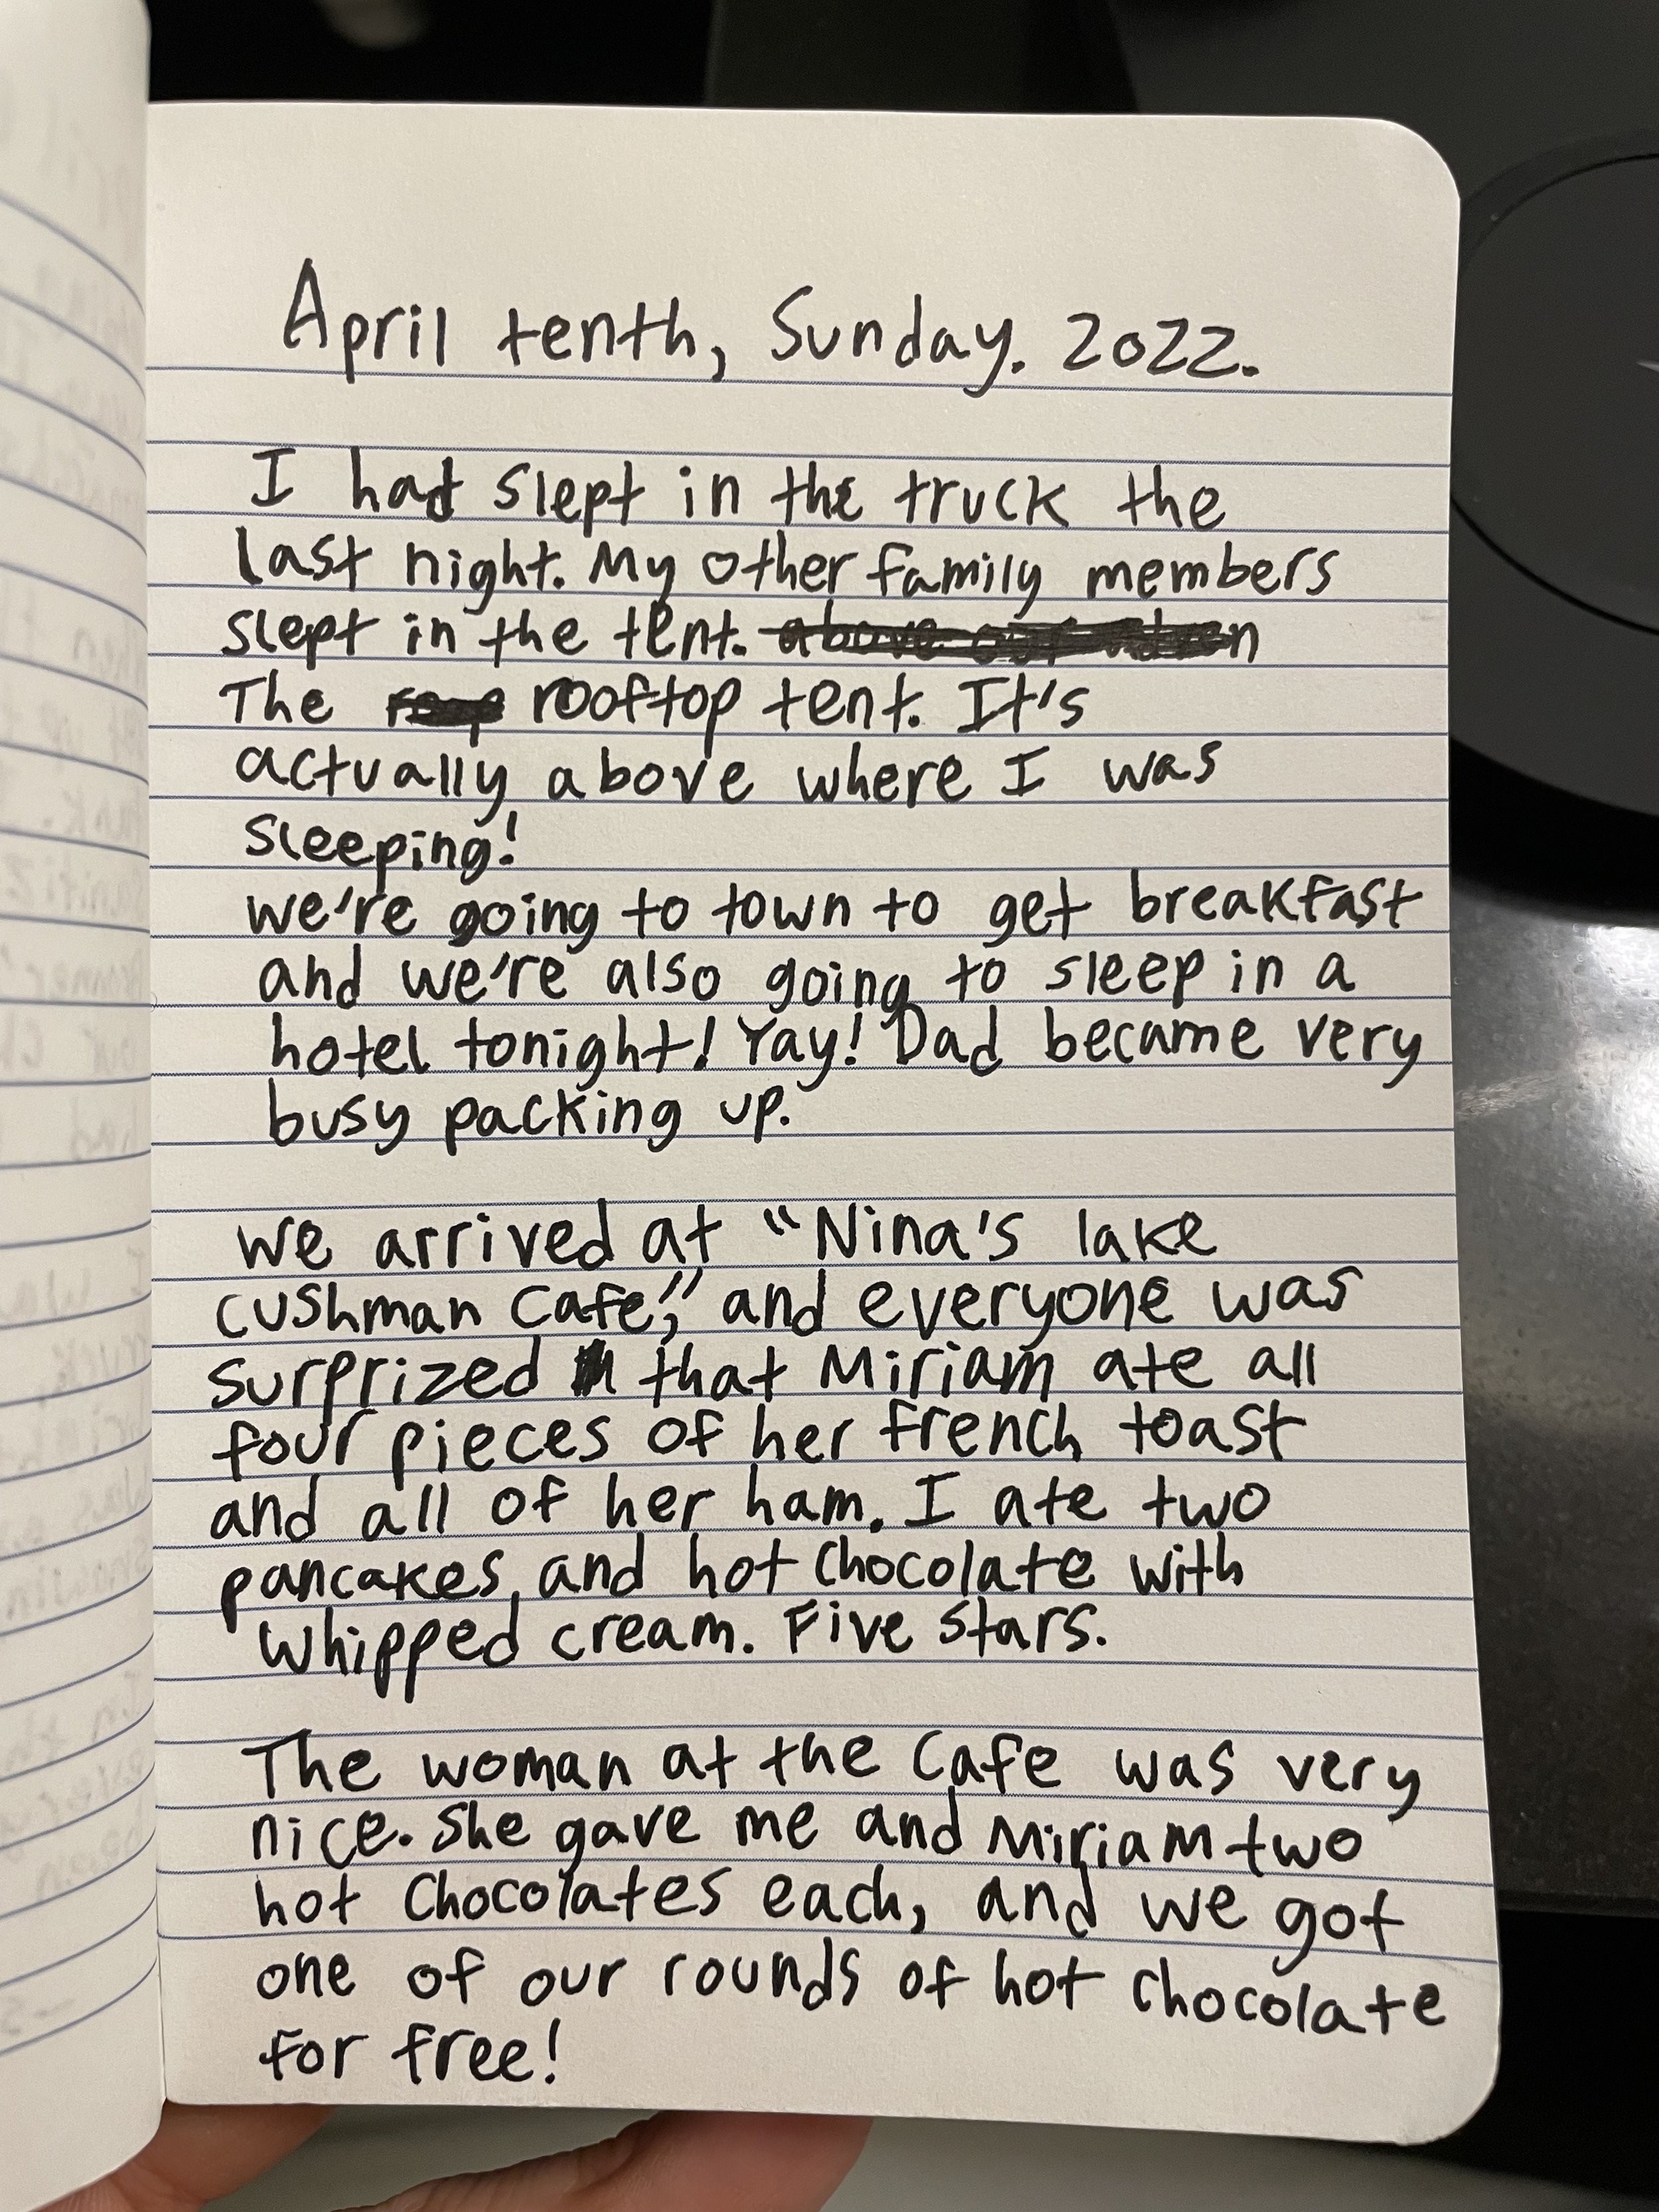 April tenth, Sunday. 2022.
I had slept in the truck the
last night. My other family members
slept in the tent. above our
The rooftop tent. It's
actually above where I was
sleeping!
we're going to town to get breakfast
and we're also going to sleep in a
hotel tonight! Yay! Dad became very
busy packing up.
We arrived at "Nina's lake
cushman Cafe," and everyone was
surprized that Miriam ate all
four pieces of her french toast
and all of her ham. I ate two
pancakes, and hot chocolate with
whipped cream. Five stars.
The woman at the Cafe was very
nice. She gave me and Miriam two
hot chocolates each, and we got
one of our rounds of hot chocolate
for free!